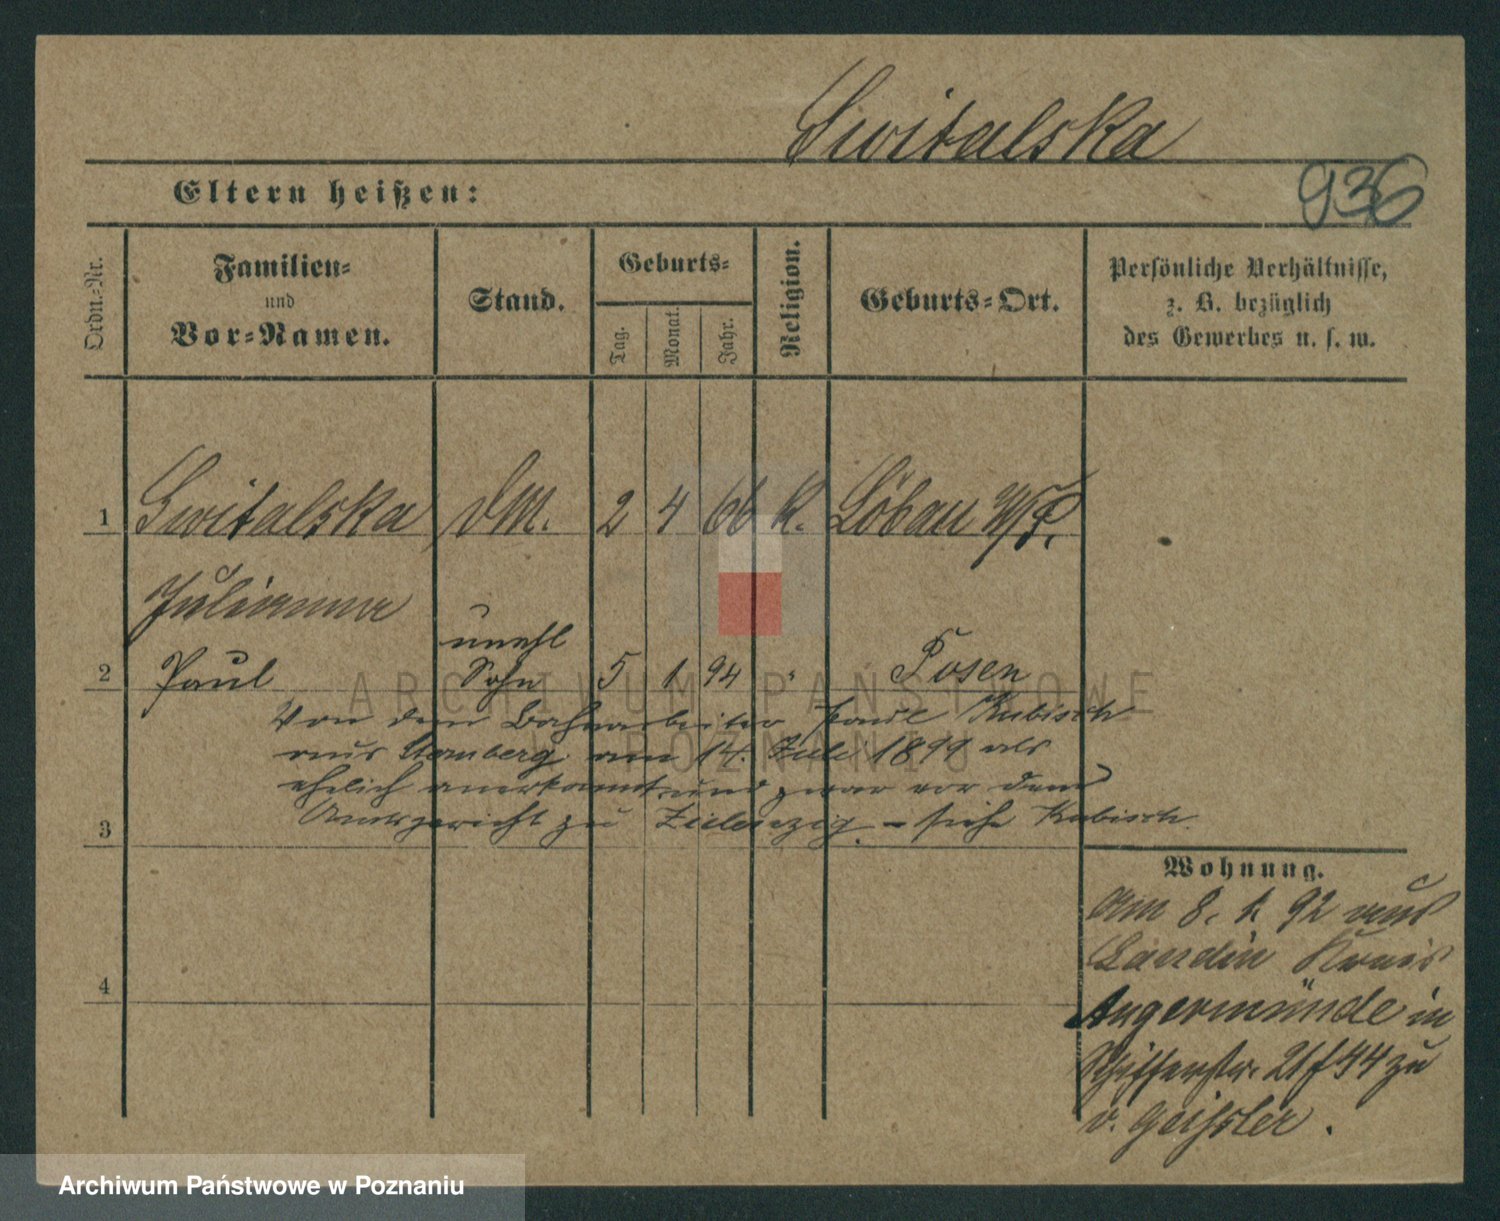 Switalska
936
Eltern heißen:
Ordn.-Nr.
Familien-
und
Vor-Namen.
Stand.
Geburts-
Tag.
Monat.
Jahr.
Religion.
Geburts-Ort.
Persönliche Verhältnisse,
z. B. bezüglich
des Gewerbes u. s. w.
1 Switalska DM. 2 4 66 k. Löbau W/P.
Julianna
unehl
2 Paul Sohn 5 1 94 " Posen
Von dem Bahnarbeiter Paul Kubisch
aus Sternberg am 14. Juli 1899 als
ehelich anerkannt und zwar vor dem
3 Amtsgericht zu Zielenzig - siehe Kubisch.
4
Wohnung.
Am 8. 1. 92 aus
Landin Kreis
Angermünde in
Schifferstr. 21 f 44 zu
v. Geissler.
ARCHIWUM PAŃSTWOWE
W POZNANIU
Archiwum Państwowe w Poznaniu